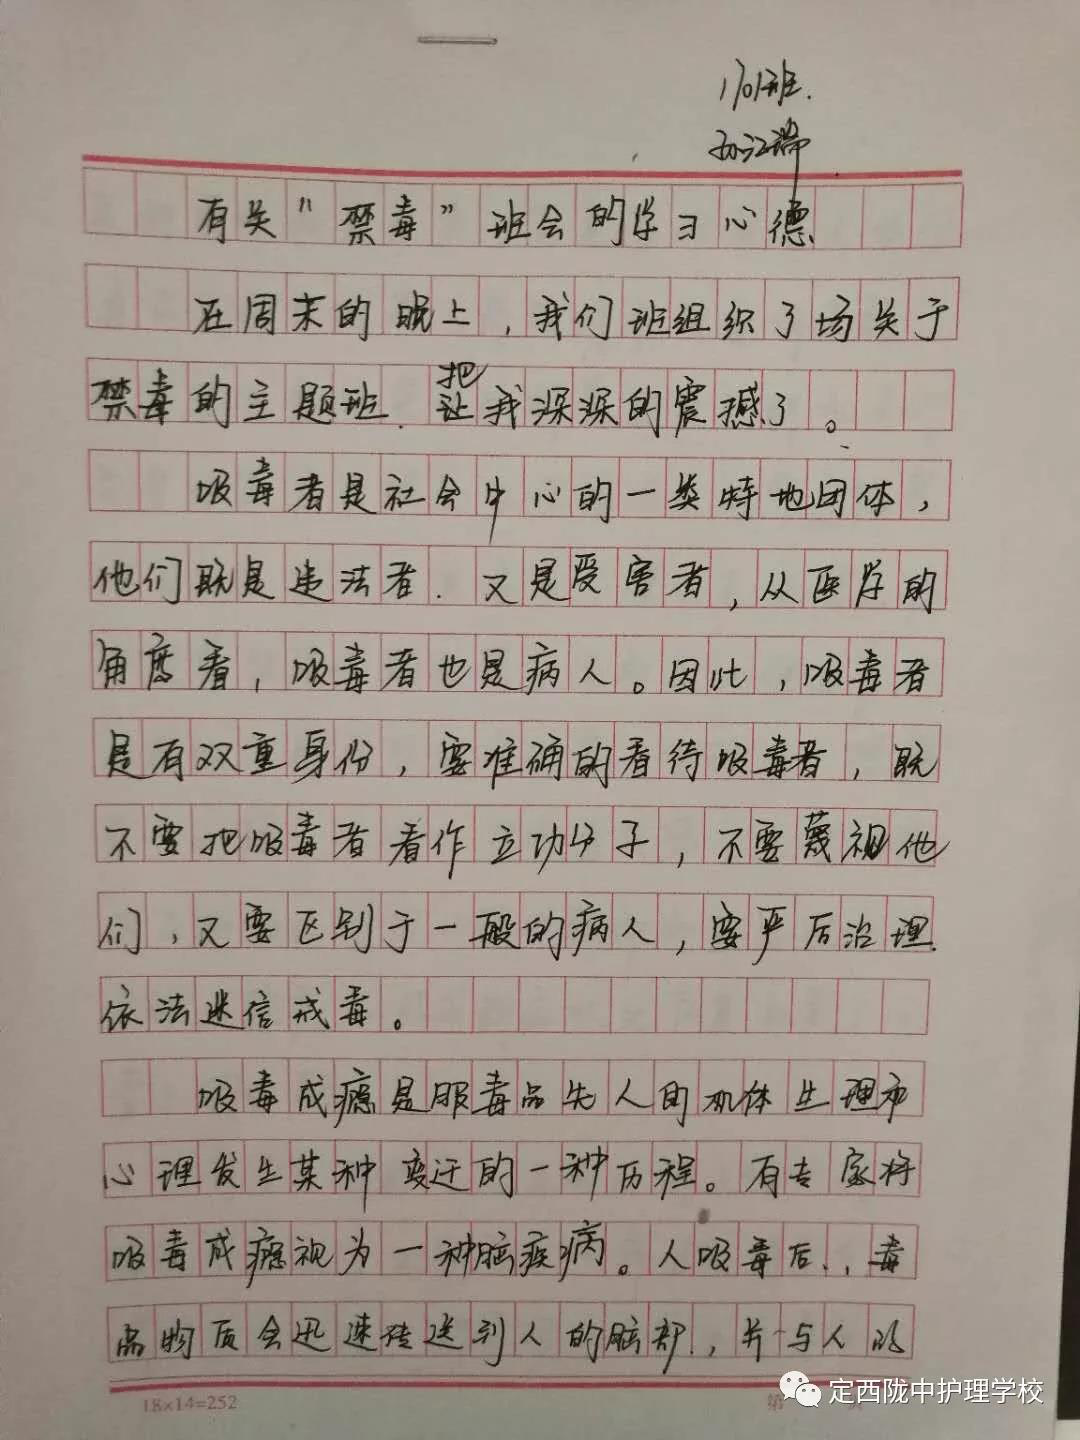 1701班.
有关“禁毒”班会的学习心德
在周末的晚上，我们班组织了场关于
禁毒的主题班.把让我深深的震撼了。
吸毒者是社会中心的一类特地团体，
他们既是违法者.又是受害者，从医学的
角度看，吸毒者也是病人。因此，吸毒者
是有双重身份，要准确的看待吸毒者，既
不要把吸毒者看作立功分子，不要蔑视他
们，又要区别于一般的病人，要严厉治理.
依法迷信戒毒。
吸毒成瘾是服毒品失人的机体生理和
心理发生某种变迁的一种历程。有专家将
吸毒成瘾视为一种脑疾病。人吸毒后，毒
品物质会迅速传送到人的脑部，并与人的
18×14=252
第
定西陇中护理学校